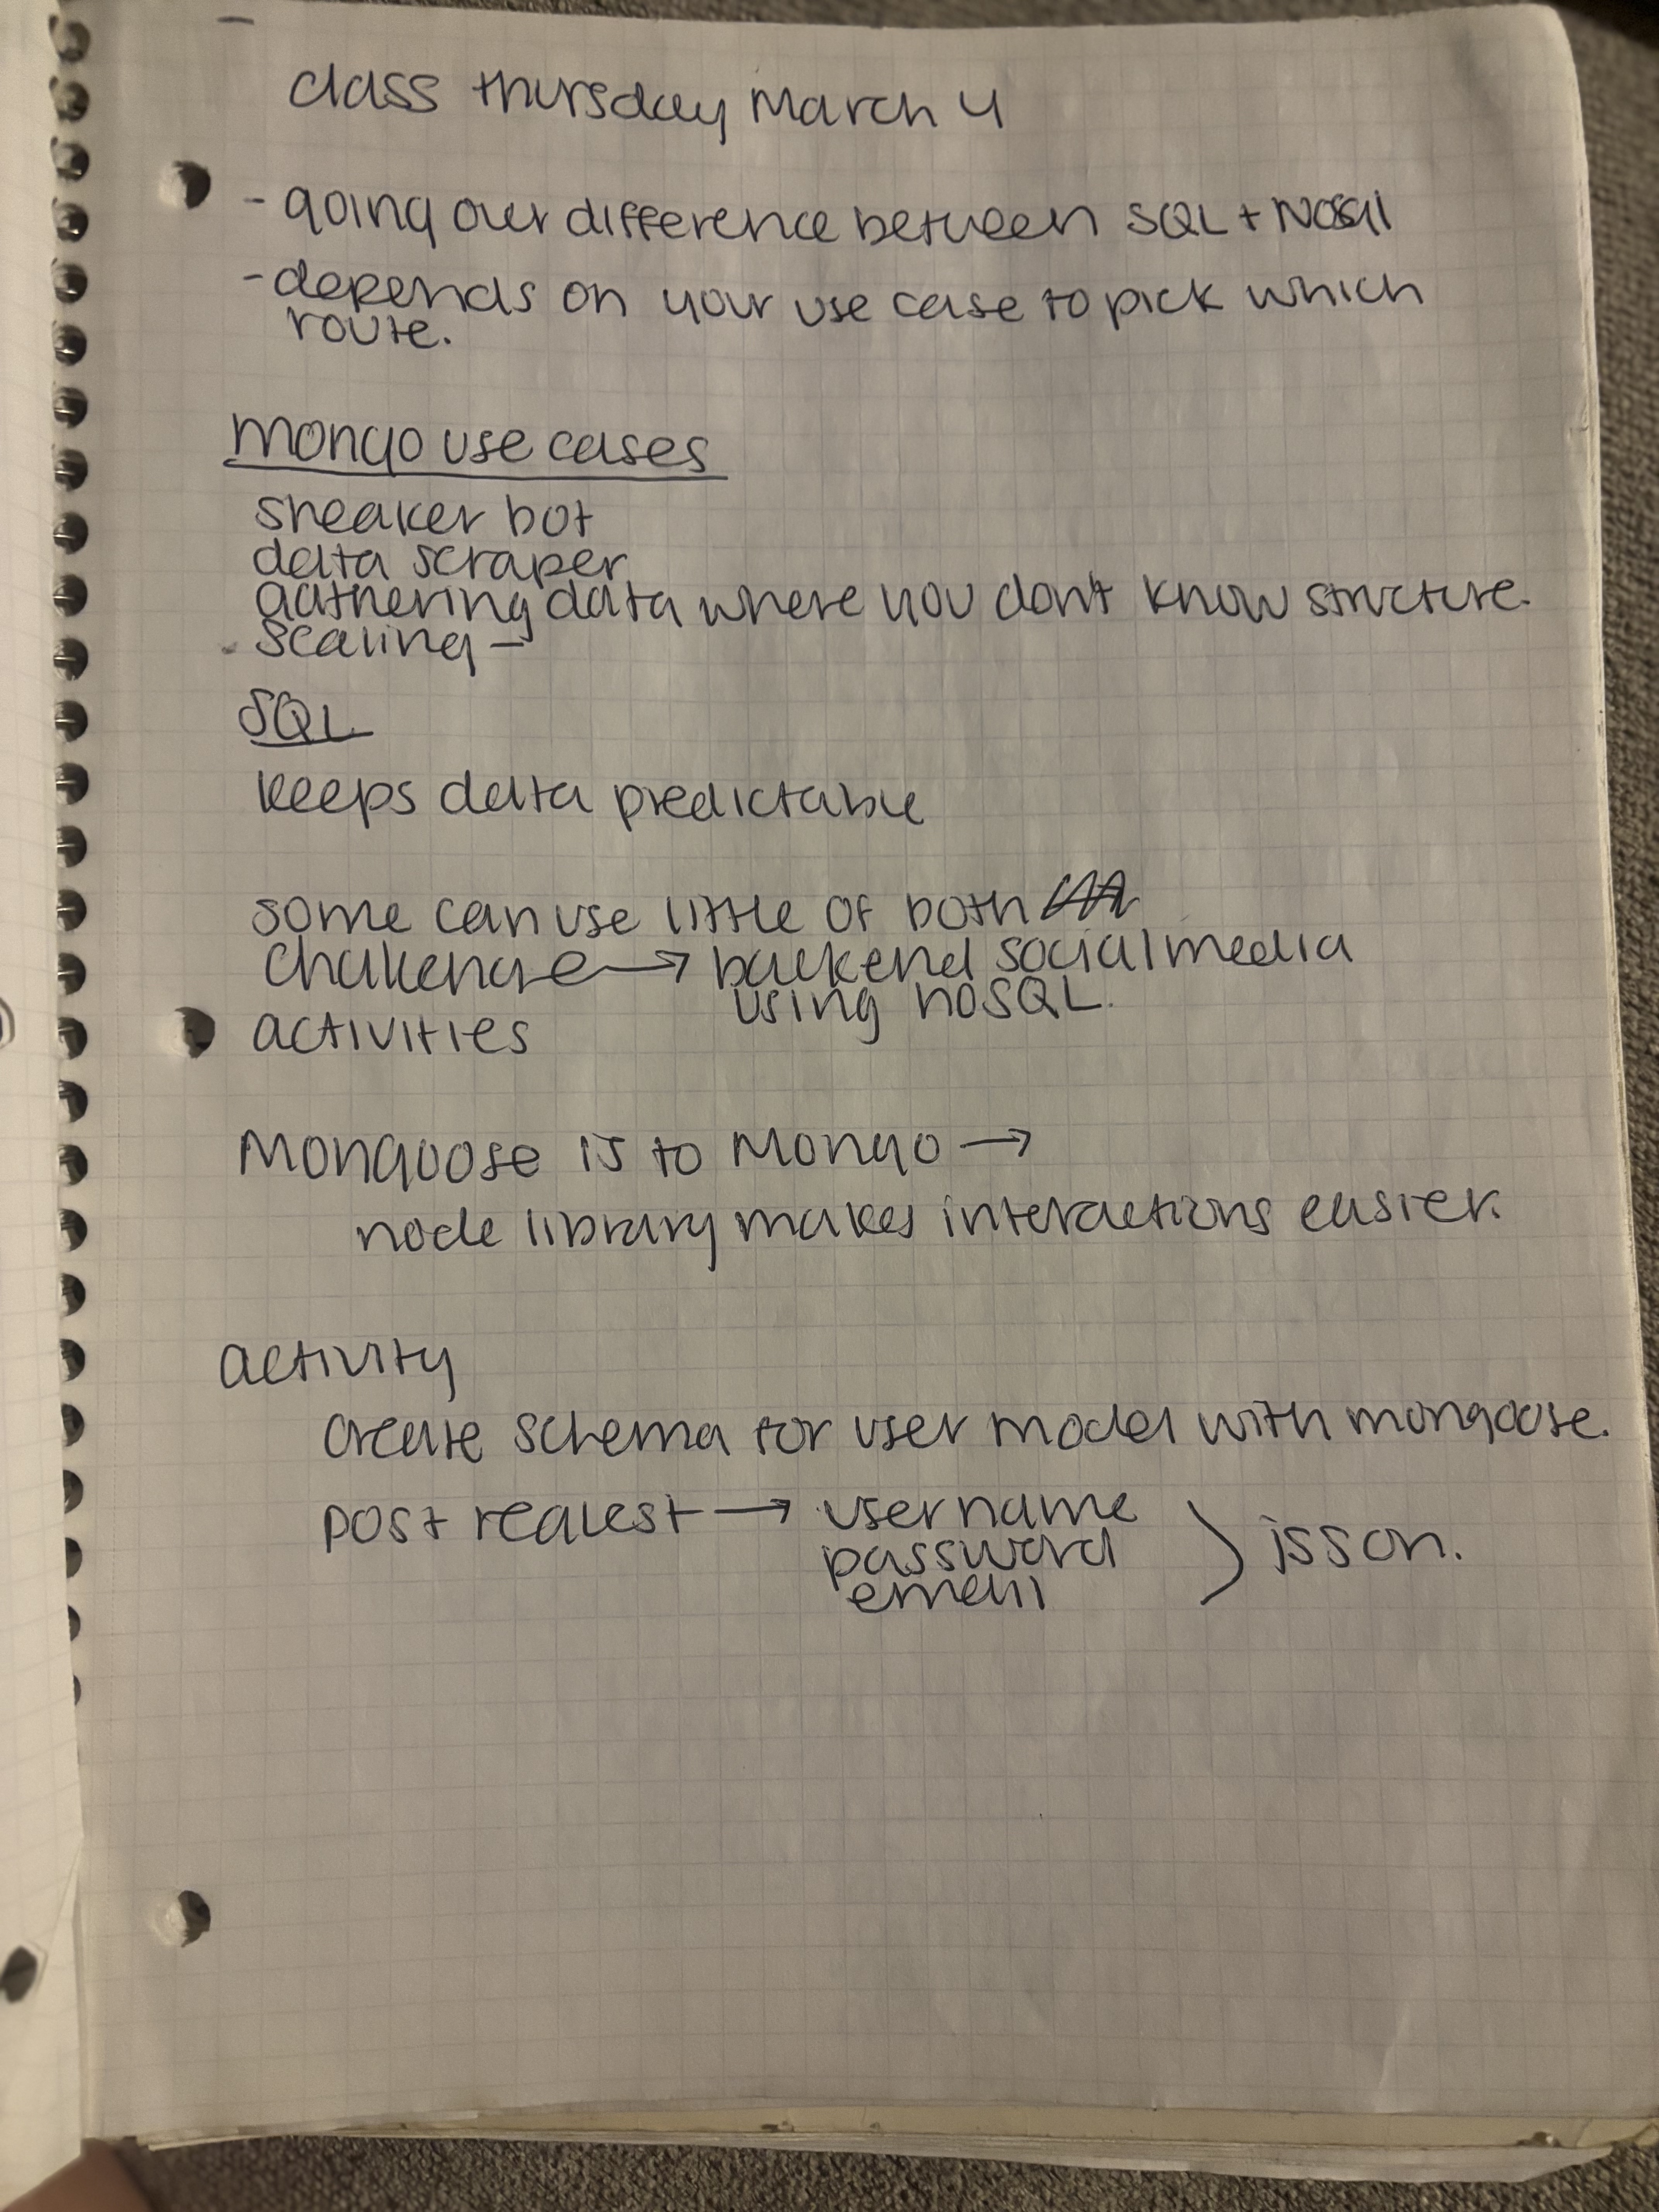 class thursday March 4
- going over difference between SQL + NoSql
- depends on your use case to pick which
route.
Mongo use cases
sneaker bot
data scraper
gathering data where you dont know structure.
scaling -
SQL
keeps data predictable
some can use little of both
challenge → backend social media
using noSQL.
activities
Mongoose is to Mongo →
node library makes interactions easier.
activity
create schema for user model with mongoose.
post request → username
password
email
} jsson.